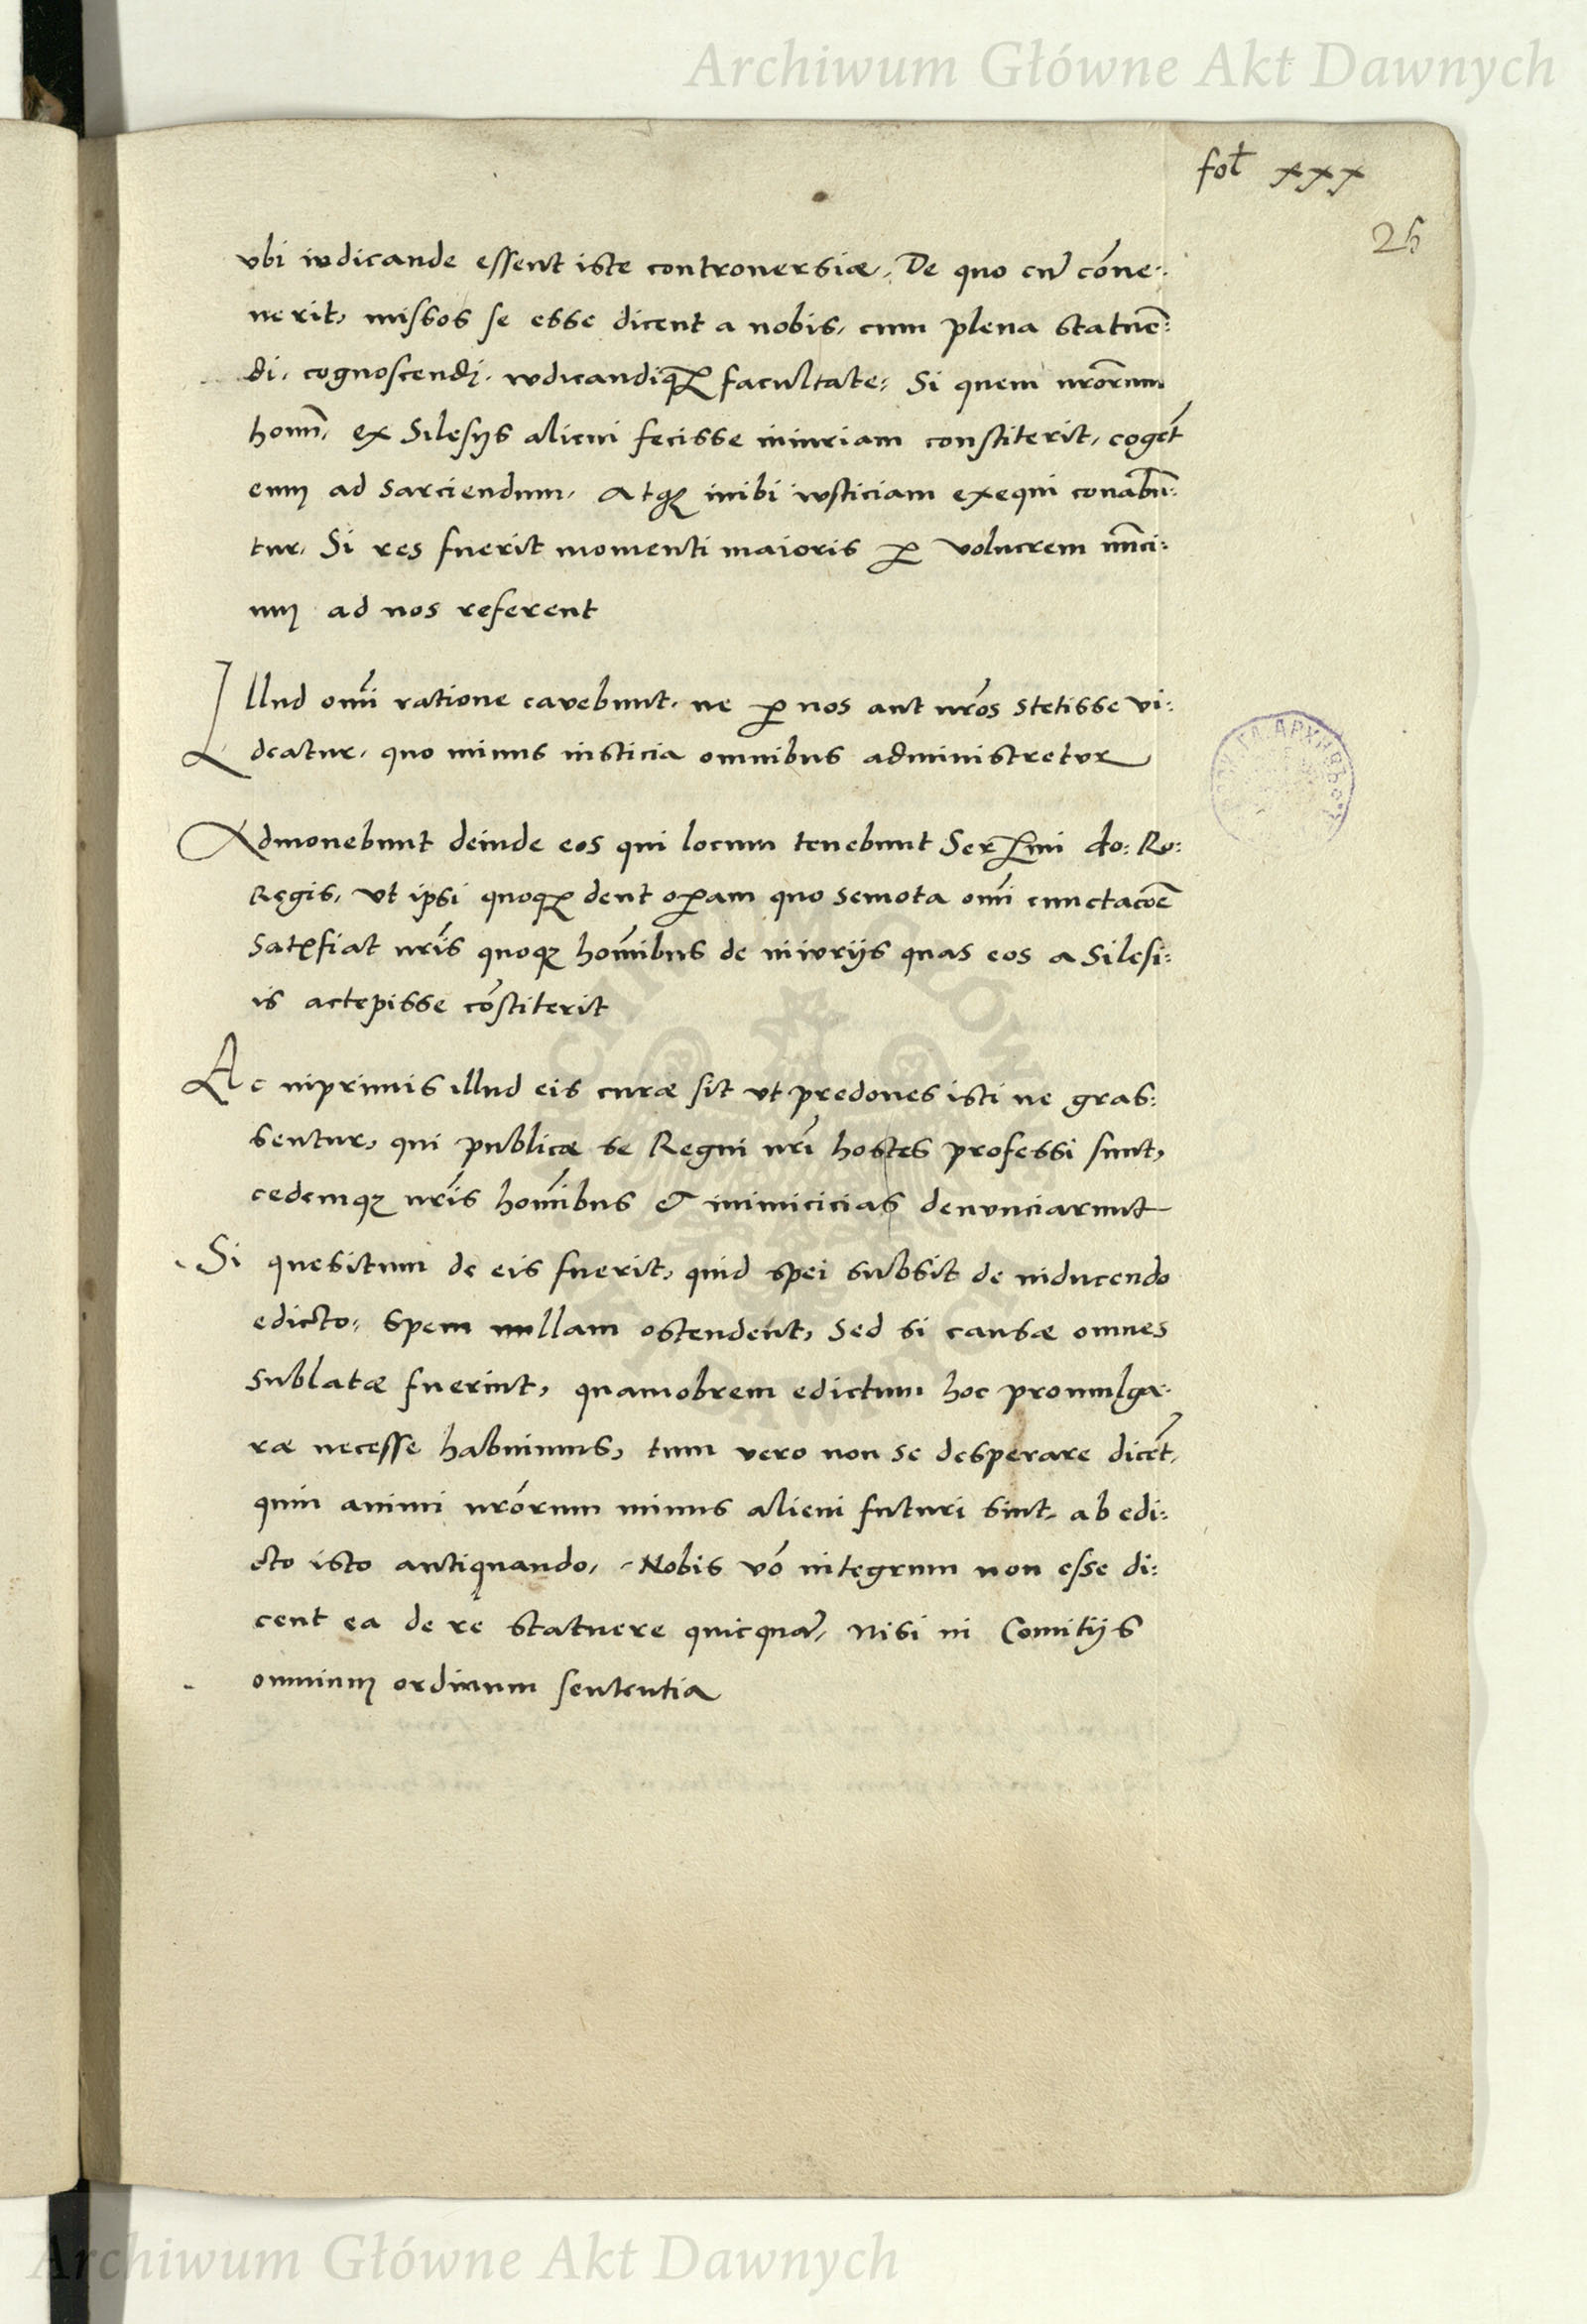 Archiwum Główne Akt Dawnych
fol xxx
25
vbi iudicande essent iste controuersiæ. De quo cũ cõue:
nerit, missos se esse dicent a nobis, cum plena statuẽ:
di, cognoscendi, iudicandiq̃ facultate: Si quem nr̃orum
homĩ, ex Silesijs alicui fecisse iniuriam constiterit, cogẽt
eum ad sarciendum, atq; inibi iusticiam exequi conabũ:
tur. Si res fuerit momenti maioris ꝑ volucrem nũci:
um ad nos referent
Illud om̃i ratione cavebunt, ne ꝑ nos aut nr̃os stetisse vi:
deatur, quo minus iusticia omnibus administretur
Admonebunt deinde eos qui locum tenebunt Ser.mi do: Ro:
Regis, vt ipsi quoq; dent oꝑam quo semota om̃i cunctacõe
satisfiat nr̃is quoq; hom̃ibus de iniurijs quas eos a Silesi:
is accepisse cõstiterit
Ac inprimis illud eis curæ sit vt predones isti ne gras:
sentur, qui publicæ se Regni nr̃i hostes professi sunt,
cedemq; nr̃is hom̃ibus & inimicicias denunciarunt
Si quesitum de eis fuerit, quid spei subsit de inducendo
edicto: spem nullam ostendent, sed si causæ omnes
sublatæ fuerint, quamobrem edictum hoc promulga:
ræ necesse habuimus, tum vero non se desperare dicẽt,
quin animi nr̃orum minus alieni futuri sint, ab edi:
cto isto antiquando, Nobis võ integrum non esse di:
cent ea de re statuere quicquã, nisi in Comitijs
omnium ordinum sententia
Archiwum Główne Akt Dawnych